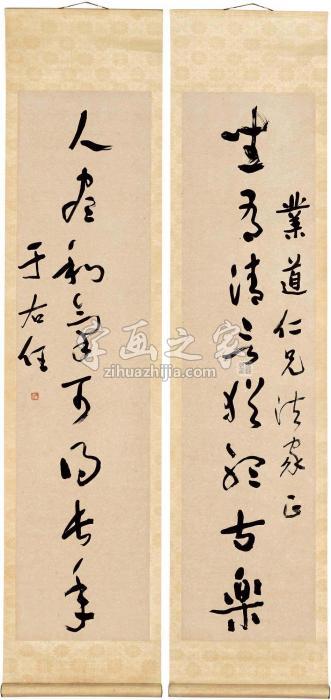 業道仁兄法家正
坐有清言猶聽古樂
人盡和氣可得長年
于右任
字画之家
zihuazhijia.com